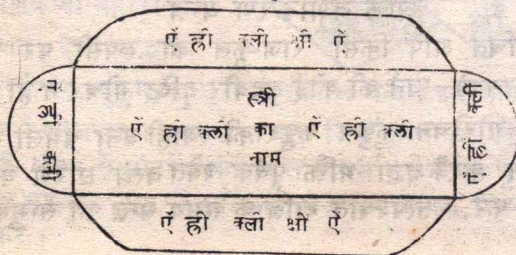 ऐं ह्री क्ली श्री ऐं
ऐं ह्रीं क्ली
स्त्री
ऐं ह्री क्ली का ऐं ह्री क्ली
नाम
ऐं ह्रीं क्ली
ऐं ह्री क्ली श्री ऐं